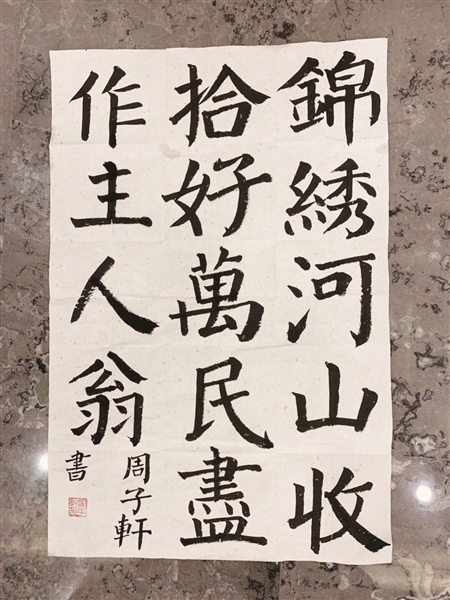 錦綉河山收
拾好萬民盡
作主人翁
周子軒
書